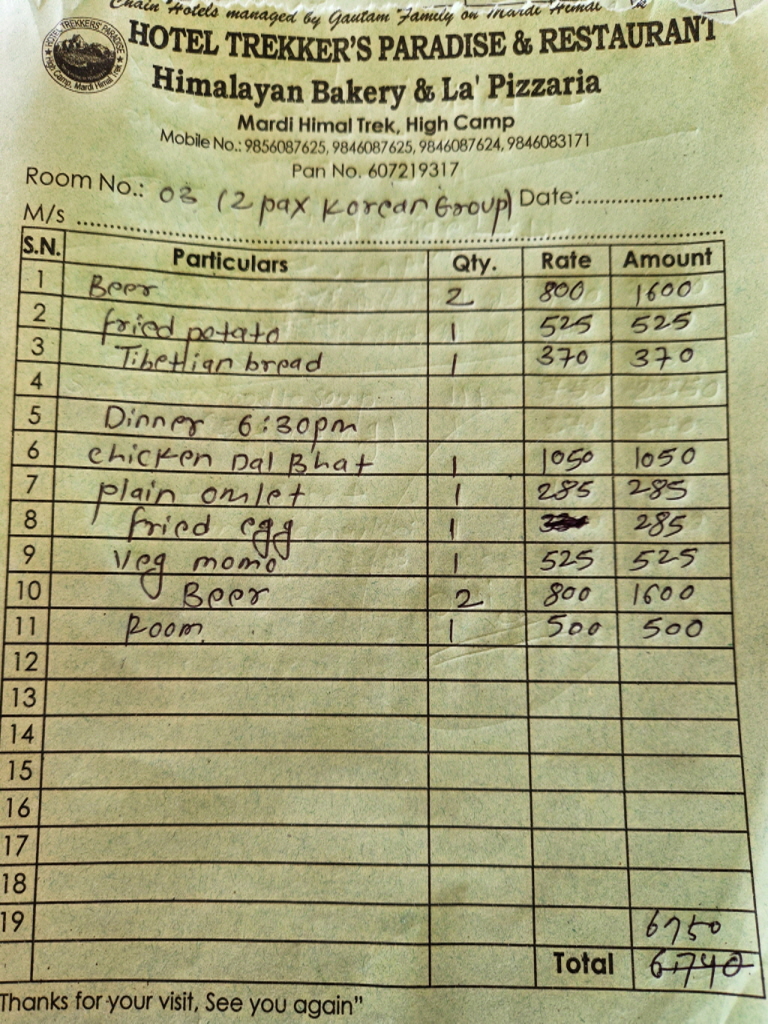 Chain Hotels managed by Gautam Family on Mardi Himal
HOTEL TREKKER'S PARADISE & RESTAURANT
Himalayan Bakery & La' Pizzaria
Mardi Himal Trek, High Camp
Mobile No.: 9856087625, 9846087625, 9846087624, 9846083171
Pan No. 607219317
Room No.: 03 (2 pax Korean Group) Date:
M/s
S.N. Particulars Qty. Rate Amount
1 Beer 2 800 1600
2 fried potato 1 525 525
3 Tibethian bread 1 370 370
4
5 Dinner 6:30pm
6 chicken Dal Bhat 1 1050 1050
7 plain omlet 1 285 285
8 fried egg 1 285
9 Veg momo 1 525 525
10 Beer 2 800 1600
11 Room 1 500 500
12
13
14
15
16
17
18
19 6750
Total 6740
Thanks for your visit, See you again"